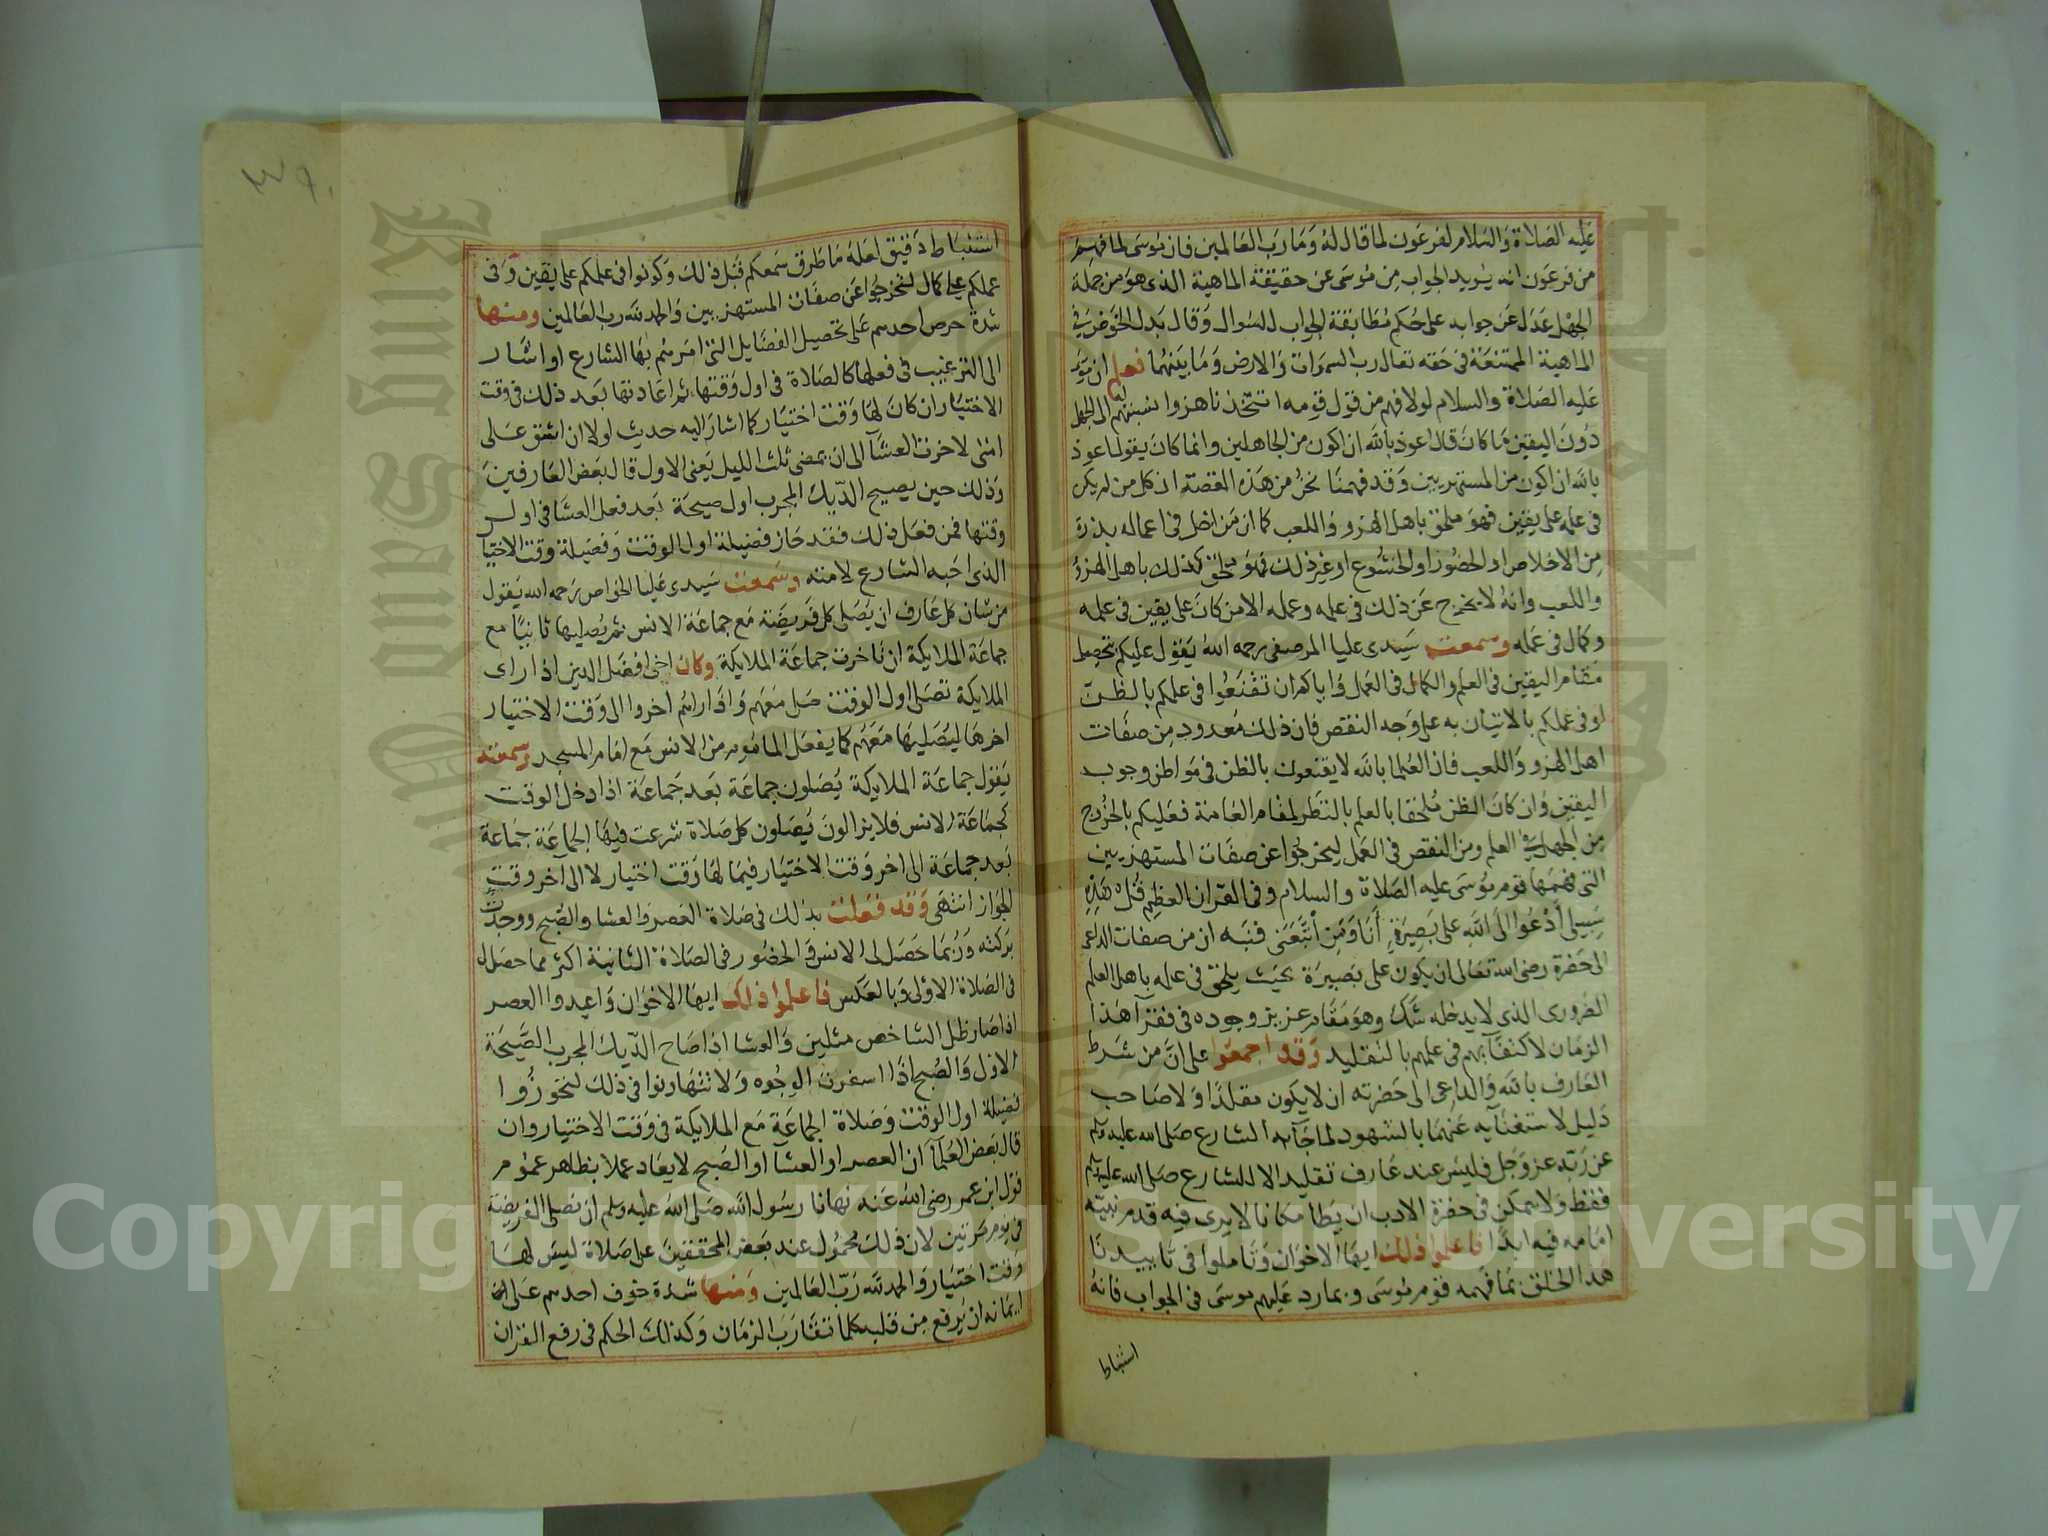 عليه الصلاة والسلام لفرعون لما قال له وما رب العالمين فان موسى لما فهم
من فرعون انه يريد الجواب من موسى عن حقيقة الماهية الذى هو من جملة
الجهل عدل عن جوابه على حكم مطابقة الجواب للسوال وقال بدل الخوض في
الماهية الممتنعة فى حقه تعالى رب السموات والارض وما بينهما فعلم ان موسى
عليه الصلاة والسلام لولا فهم من قول قومه اتتخذنا هزوا نسبتهم الى الجهل
دون اليقين ما كان قال اعوذ بالله ان اكون من الجاهلين وانما كان يقول اعوذ
بالله ان اكون من المستهزيين وقد فهمنا نحن من هذه القصة ان كل من لم يكن
فى علمه على يقين فهو ملحق باهل الهزو واللعب كما ان من اخل فى اعماله بذرة
من الاخلاص او الحضور او الخشوع او غير ذلك فهو ملحق كذلك باهل الهزو
واللعب وانه لا يخرج عن ذلك فى علمه وعمله الا من كان على يقين فى علمه
وكمال فى عمله وسمعت سيدى عليا المرصفى رحمه الله يقول عليكم بتحصيل
مقام اليقين فى العلم والكمال فى العمل واياكم ان تقنعوا فى علمكم بالظن
او فى عملكم بالاتيان به على وجه النقص فان ذلك معدود من صفات
اهل الهزو واللعب فان العلما بالله لا يقنعون بالظن فى مواطن وجوب
اليقين وان كان الظن ملحقا بالعلم بالنظر لمقام العامة فعليكم بالخروج
من الجهل فى العلم ومن النقص فى العمل ليخرجوا عن صفات المستهزيين
التى فهمها قوم موسى عليه الصلاة والسلام وفى القران العظيم قل هذه
سبيلى أدعوا الى الله على بصيرة أنا ومن اتبعنى فنبه ان من صفات الداعى
الى حضرة رضى الله تعالى ان يكون على بصيرة بحيث يلحق فى علمه باهل العلم
الضرورى الذى لا يدخله شك وهو مقام عزيز وجوده فى فقرآ هذا
الزمان لاكتفآيهم فى علمهم بالتقليد وقد اجمعوا على ان من شرط
العارف بالله والداعى الى حضرته ان لا يكون مقلدا ولا صاحب
دليل لاستغنآيه عنهما بالشهود لما جآ به الشارع صلى الله عليه وسلم
عن ربه عز وجل فليس عند عارف تقليد الا للشارع صلى الله عليه وسلم
فقط ولا يمكن فى حضرة الادب ان يطأ مكانا لا يرى فيه قدم نبيه
امامه فيه ابدا فاعلموا ذلك ايها الاخوان وتاملوا فى تاييدنا
هذا الخلق بما فهمه قوم موسى وبما رد عليهم موسى فى الجواب فانه
استنباط
استنباط دقيق لعله ما طرق سمعكم قبل ذلك وكونوا فى علمكم على يقين وفى
عملكم على كمال لتخرجوا عن صفات المستهزيين والحمد لله رب العالمين ومنها
شدة حرص احدهم على تحصيل الفضايل التى امرهم بها الشارع او اشار
الى الترغيب فى فعلها كالصلاة فى اول وقتها ثم اعادتها بعد ذلك فى وقت
الاختيار ان كان لها وقت اختيار كما اشار اليه حديث لولا ان اشق على
امتى لاخرت العشآ الى ان يمضى ثلث الليل يعنى الاول قال بعض العارفين
وذلك حين يصيح الديك المجرب اول صيحة بعد فعل العشا فى اول
وقتها فمن فعل ذلك فقد حاز فضيلة اول الوقت وفضيلة وقت الاختيار
الذى احبه الشارع لامته وسمعت سيدى عليا الخواص رحمه الله يقول
من شان كل عارف ان يصلى كل فريضة مع جماعة الانس ثم يصليها ثانيا مع
جماعة الملايكة ان تاخرت جماعة الملايكة وكان اخى افضل الدين اذا راى
الملايكة تصلى اول الوقت صلى معهم واذا راهم اخروا الى وقت الاختيار
اخرها ليصليها معهم كما يفعل الماموم من الانس مع امام المسجد وسمعته
يقول جماعة الملايكة يصلون جماعة بعد جماعة اذا دخل الوقت
كجماعة الانس فلا يزالون يصلون كل صلاة شرعت فيها الجماعة جماعة
بعد جماعة الى اخر وقت الاختيار فيما لها وقت اختيار لا الى آخر وقت
الجواز انتهى وقد فعلت بذلك فى صلاة العصر والعشا والصبح ووجدت
بركته وربما حصل لى الانس والحضور فى الصلاة الثانية اكثر مما حصل لى
فى الصلاة الاولى وبالعكس فاعلموا ذلك ايها الاخوان واعيدوا العصر
اذا صار ظل الشاخص مثلين والعشا اذا صاح الديك المجرب الصيحة
الاولى والصبح اذا اسفرت الوجوه ولا تتهاونوا فى ذلك لتحوزوا
فضيلة اول الوقت وصلاة الجماعة مع الملايكة فى وقت الاختيار وان
قال بعض العلمآ ان العصر او العشآ او الصبح لا يعاد عملا بظاهر عموم
قول ابن عمر رضى الله عنه نهانا رسول الله صلى الله عليه وسلم ان نصلى الفريضة
فى يوم مرتين لان ذلك محمول عند بعض المحققين على صلاة ليس لها
وقت اختيار والحمد لله رب العالمين ومنها شدة خوف احدهم على
ايمانه ان يرفع من قلبه كلما تقارب الزمان وكذلك الحكم فى رفع القران
Copyright © King Saud University
King Saud University